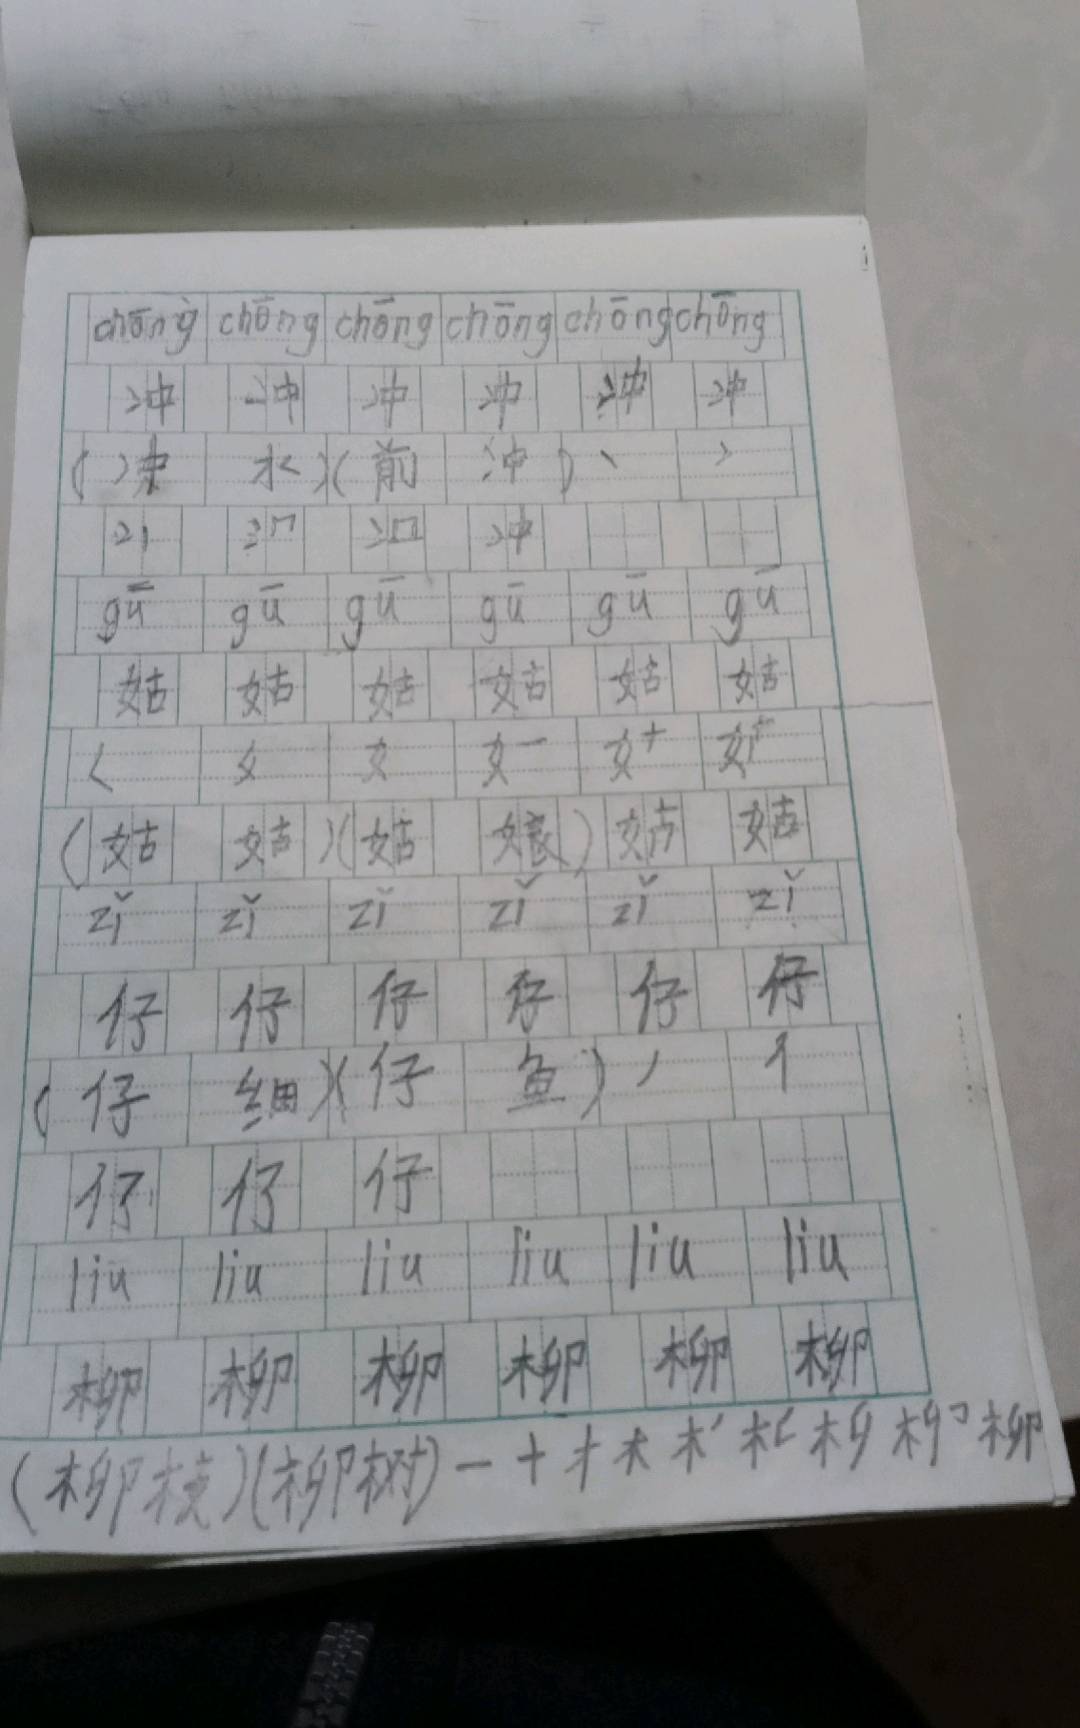 chōng chōng chōng chōng chōng chōng
冲 冲 冲 冲 冲 冲
(冲 水)(前 冲) 丶 冫
冲
gū gū gū gū gū gū
姑 姑 姑 姑 姑 姑
𡿨 女 女 女一 女十
(姑 姑)(姑 娘) 姑 姑
zǐ zǐ zǐ zǐ zǐ zǐ
仔 仔 仔 仔 仔 仔
(仔 细)(仔 鱼) 丿 亻
仔
liu liu liu liu liu liu
柳 柳 柳 柳 柳 柳
(柳枝)(柳树) 一 十 才 木 柳